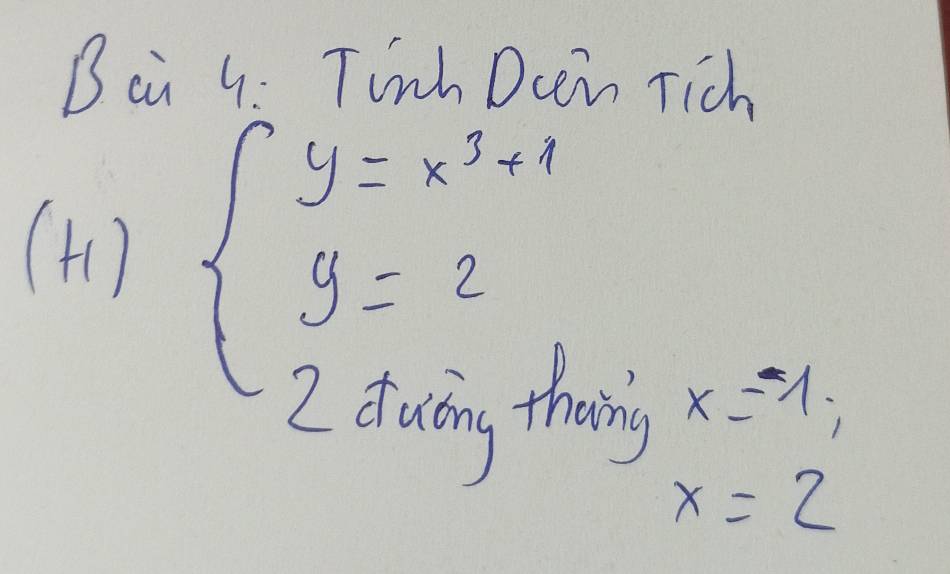 Bài 4: Tính Diện Tích
(H) { y = x³ + 1
y = 2
2 đường thẳng x = -1;
x = 2